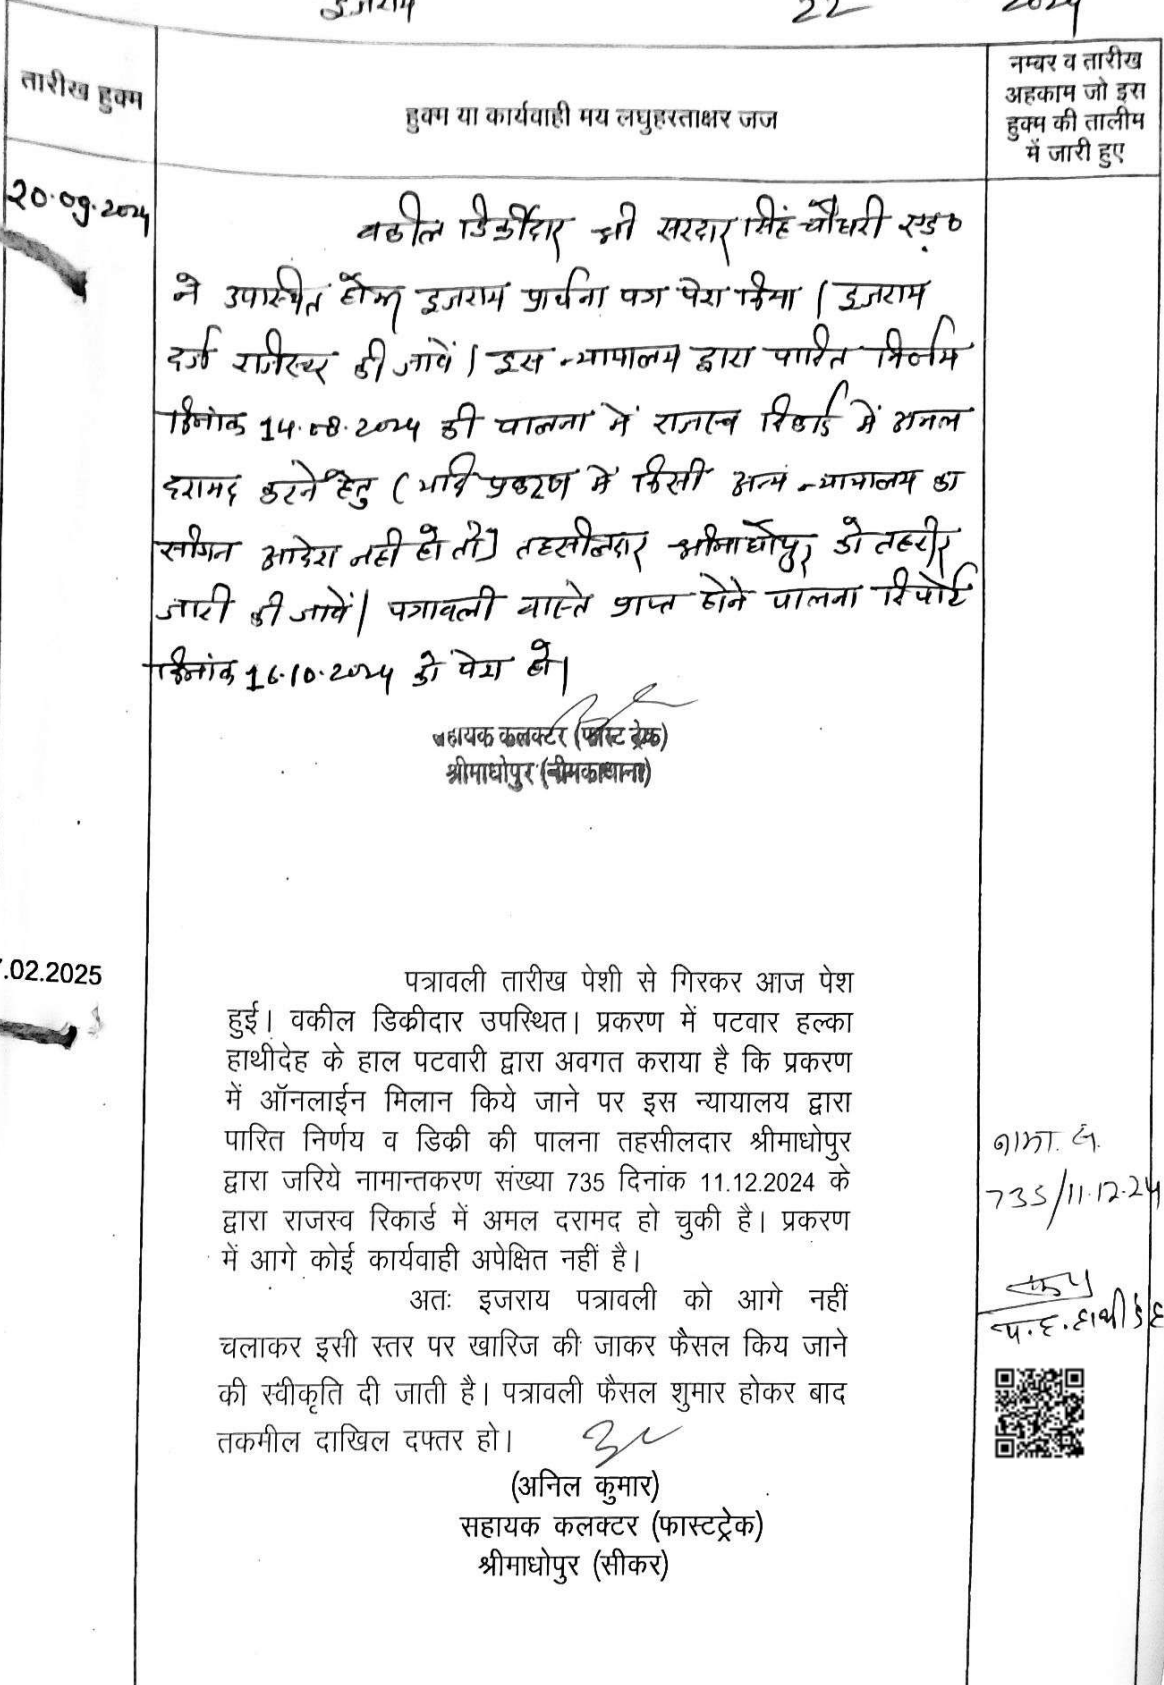 इजराय 22 2024
तारीख हुक्म
हुक्म या कार्यवाही मय लघुहस्ताक्षर जज
नम्बर व तारीख
अहकाम जो इस
हुक्म की तालीम
में जारी हुए
20.09.2024
वकील डिक्रीदार श्री सरदार सिंह चौधरी एड०
ने उपस्थित होकर इजराय प्रार्थना पत्र पेश किया। इजराय
दर्ज रजिस्टर की जावें। इस न्यायालय द्वारा पारित निर्णय
दिनांक 14.08.2024 की पालना में राजस्व रिकार्ड में अमल
दरामद करने हेतु (यदि प्रकरण में किसी अन्य न्यायालय का
स्थगन आदेश नही हो तो) तहसीलदार श्रीमाधोपुर को तहरीर
जारी की जावें। पत्रावली वास्ते प्राप्त होने पालना रिपोर्ट
दिनांक 16.10.2024 को पेश हो।
सहायक कलक्टर (फास्ट ट्रेक)
श्रीमाधोपुर (नीमकाथाना)
.02.2025
पत्रावली तारीख पेशी से गिरकर आज पेश
हुई। वकील डिकीदार उपस्थित। प्रकरण में पटवार हल्का
हाथीदेह के हाल पटवारी द्वारा अवगत कराया है कि प्रकरण
में ऑनलाईन मिलान किये जाने पर इस न्यायालय द्वारा
पारित निर्णय व डिकी की पालना तहसीलदार श्रीमाधोपुर
द्वारा जरिये नामान्तकरण संख्या 735 दिनांक 11.12.2024 के
द्वारा राजस्व रिकार्ड में अमल दरामद हो चुकी है। प्रकरण
में आगे कोई कार्यवाही अपेक्षित नहीं है।
अतः इजराय पत्रावली को आगे नहीं
चलाकर इसी स्तर पर खारिज की जाकर फैसल किय जाने
की स्वीकृति दी जाती है। पत्रावली फैसल शुमार होकर बाद
तकमील दाखिल दफ्तर हो।
(अनिल कुमार)
सहायक कलक्टर (फास्टट्रेक)
श्रीमाधोपुर (सीकर)
नामा. सं.
735/11.12.24
प.ह.हाथीदेह